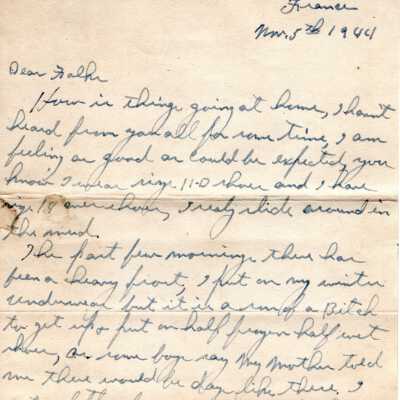 France
Nov. 5th 1944
Dear Folks
How is things going at home, I havnt
heard from you all for some time, I am
feeling as good as could be expected, you
know I wear size 11-D shoes and I have
size overshoes, I realy slide around in
the mud.
The past few mornings there has
been a heavy frost, I put on my winter
underwear but it is a son of a Bitch
to get up & put on half frozen half wet
shoes, as some boys say My Mother told
me there would be days like these, I